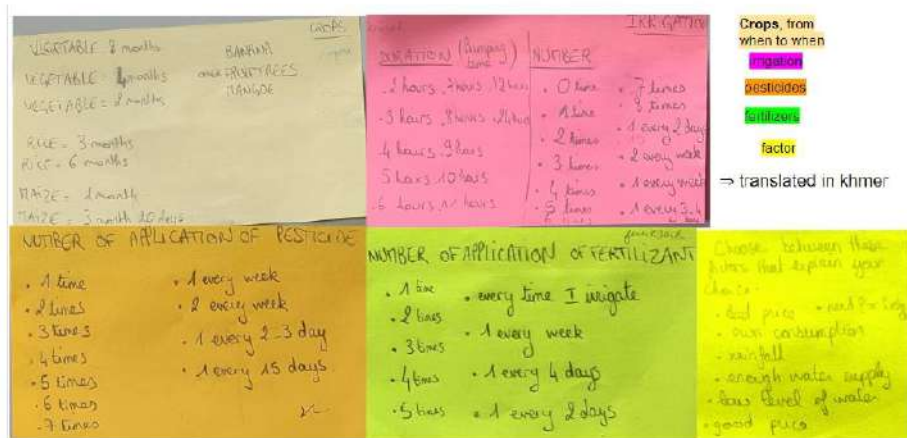 CROPS
VEGETABLE 8 months
VEGETABLE = 4 months
VEGETABLE = 2 months
RICE = 3 months
RICE = 6 months
MAIZE = 2 month
MAIZE = 3 month 20 days
BANANA
FRUITREES
MANGOE
IRRIGATION
DURATION (Pumping time)
2 hours 7 hours 12 hours
3 hours 8 hours 24 hours
4 hours 9 hours
5 hours 10 hours
6 hours hours
NUMBER
0 time
1 time
2 times
3 times
4 times
5 times
7 times
8 times
1 every 2 days
2 every week
1 every week
1 every 3-4
Crops, from
when to when
irrigation
pesticides
fertilizers
factor
⇒ translated in khmer
NUMBER OF APPLICATION OF PESTICIDE
1 time
2 times
3 times
4 times
5 times
6 times
7 times
1 every week
2 every week
1 every 2-3 day
1 every 15 days
NUMBER OF APPLICATION OF FERTILIZANT
1 time
2 times
3 times
4 times
5 times
every time I irigate
1 every week
1 every 4 days
1 every 2 days
Choose between these
factors that explain your
choice:
bad price
own consumption
rainfall
enough water supply
low level of water
good price